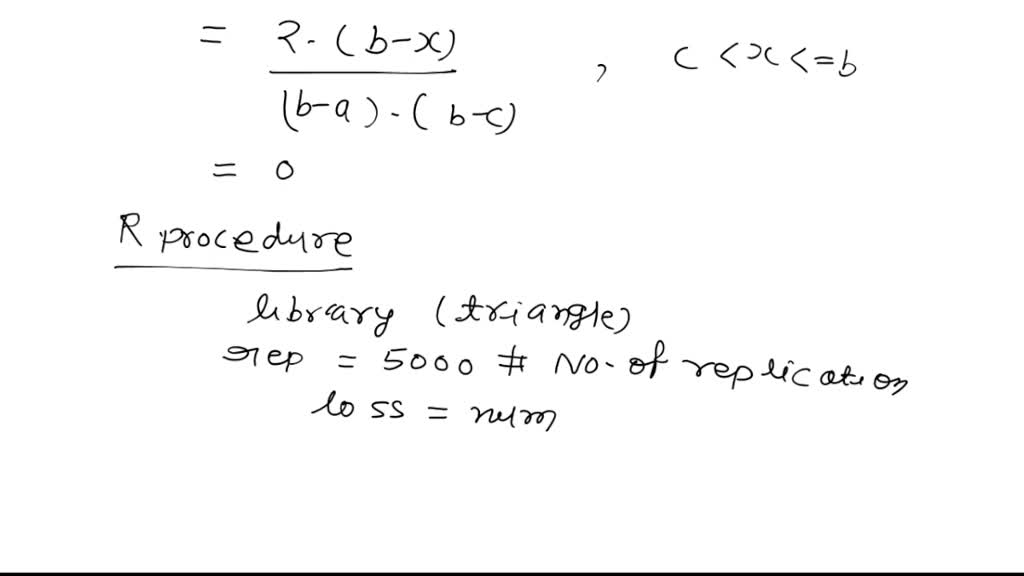 = 2. (b-x) / (b-a) . (b-c) , c < x <= b
= 0
R procedure
library (triangle)
rep = 5000 # No. of replication
loss = num